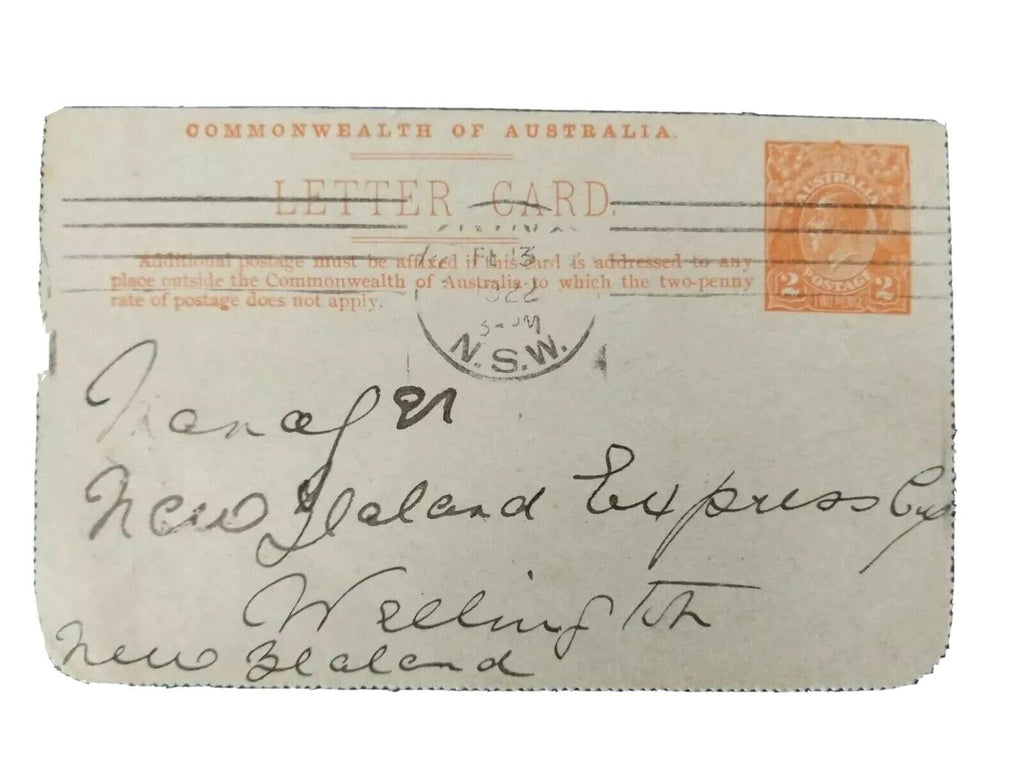 COMMONWEALTH OF AUSTRALIA.
LETTER CARD.
Additional postage must be affixed if this card is addressed to any
place outside the Commonwealth of Australia to which the two-penny
rate of postage does not apply.
AUSTRALIA
POSTAGE
2 TWO PENCE 2
N.S.W.
Manager
New Zealand Express Coy
Wellington
New Zealand